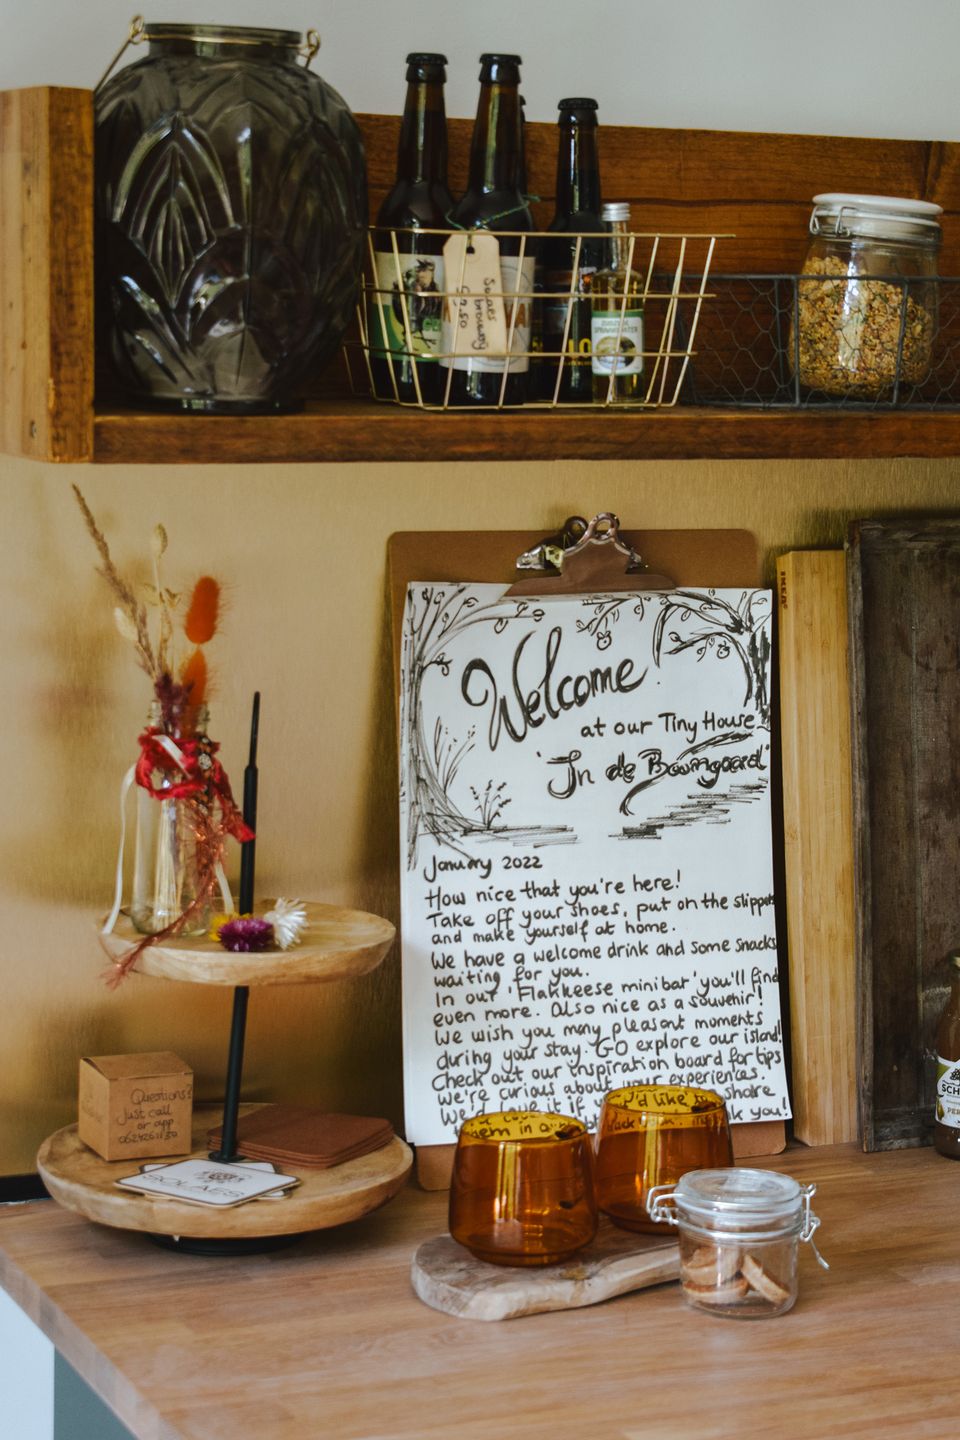 Solaes
brouwerij
€3.50
IKEA
Welcome
at our Tiny House
'In de Boomgaard'
January 2022
How nice that you're here!
Take off your shoes, put on the slippers
and make yourself at home.
We have a welcome drink and some snacks
waiting for you.
In our 'Flakkeese minibar' you'll find
even more. Also nice as a souvenir!
We wish you many pleasant moments
during your stay. GO explore our island!
Check out our inspiration board for tips
We're curious about your experiences.
We'd love it if you'd like to share
them in our black book. Thank you!
Questions?
Just call
or app
0624261130
SOLAES
SCH
PER